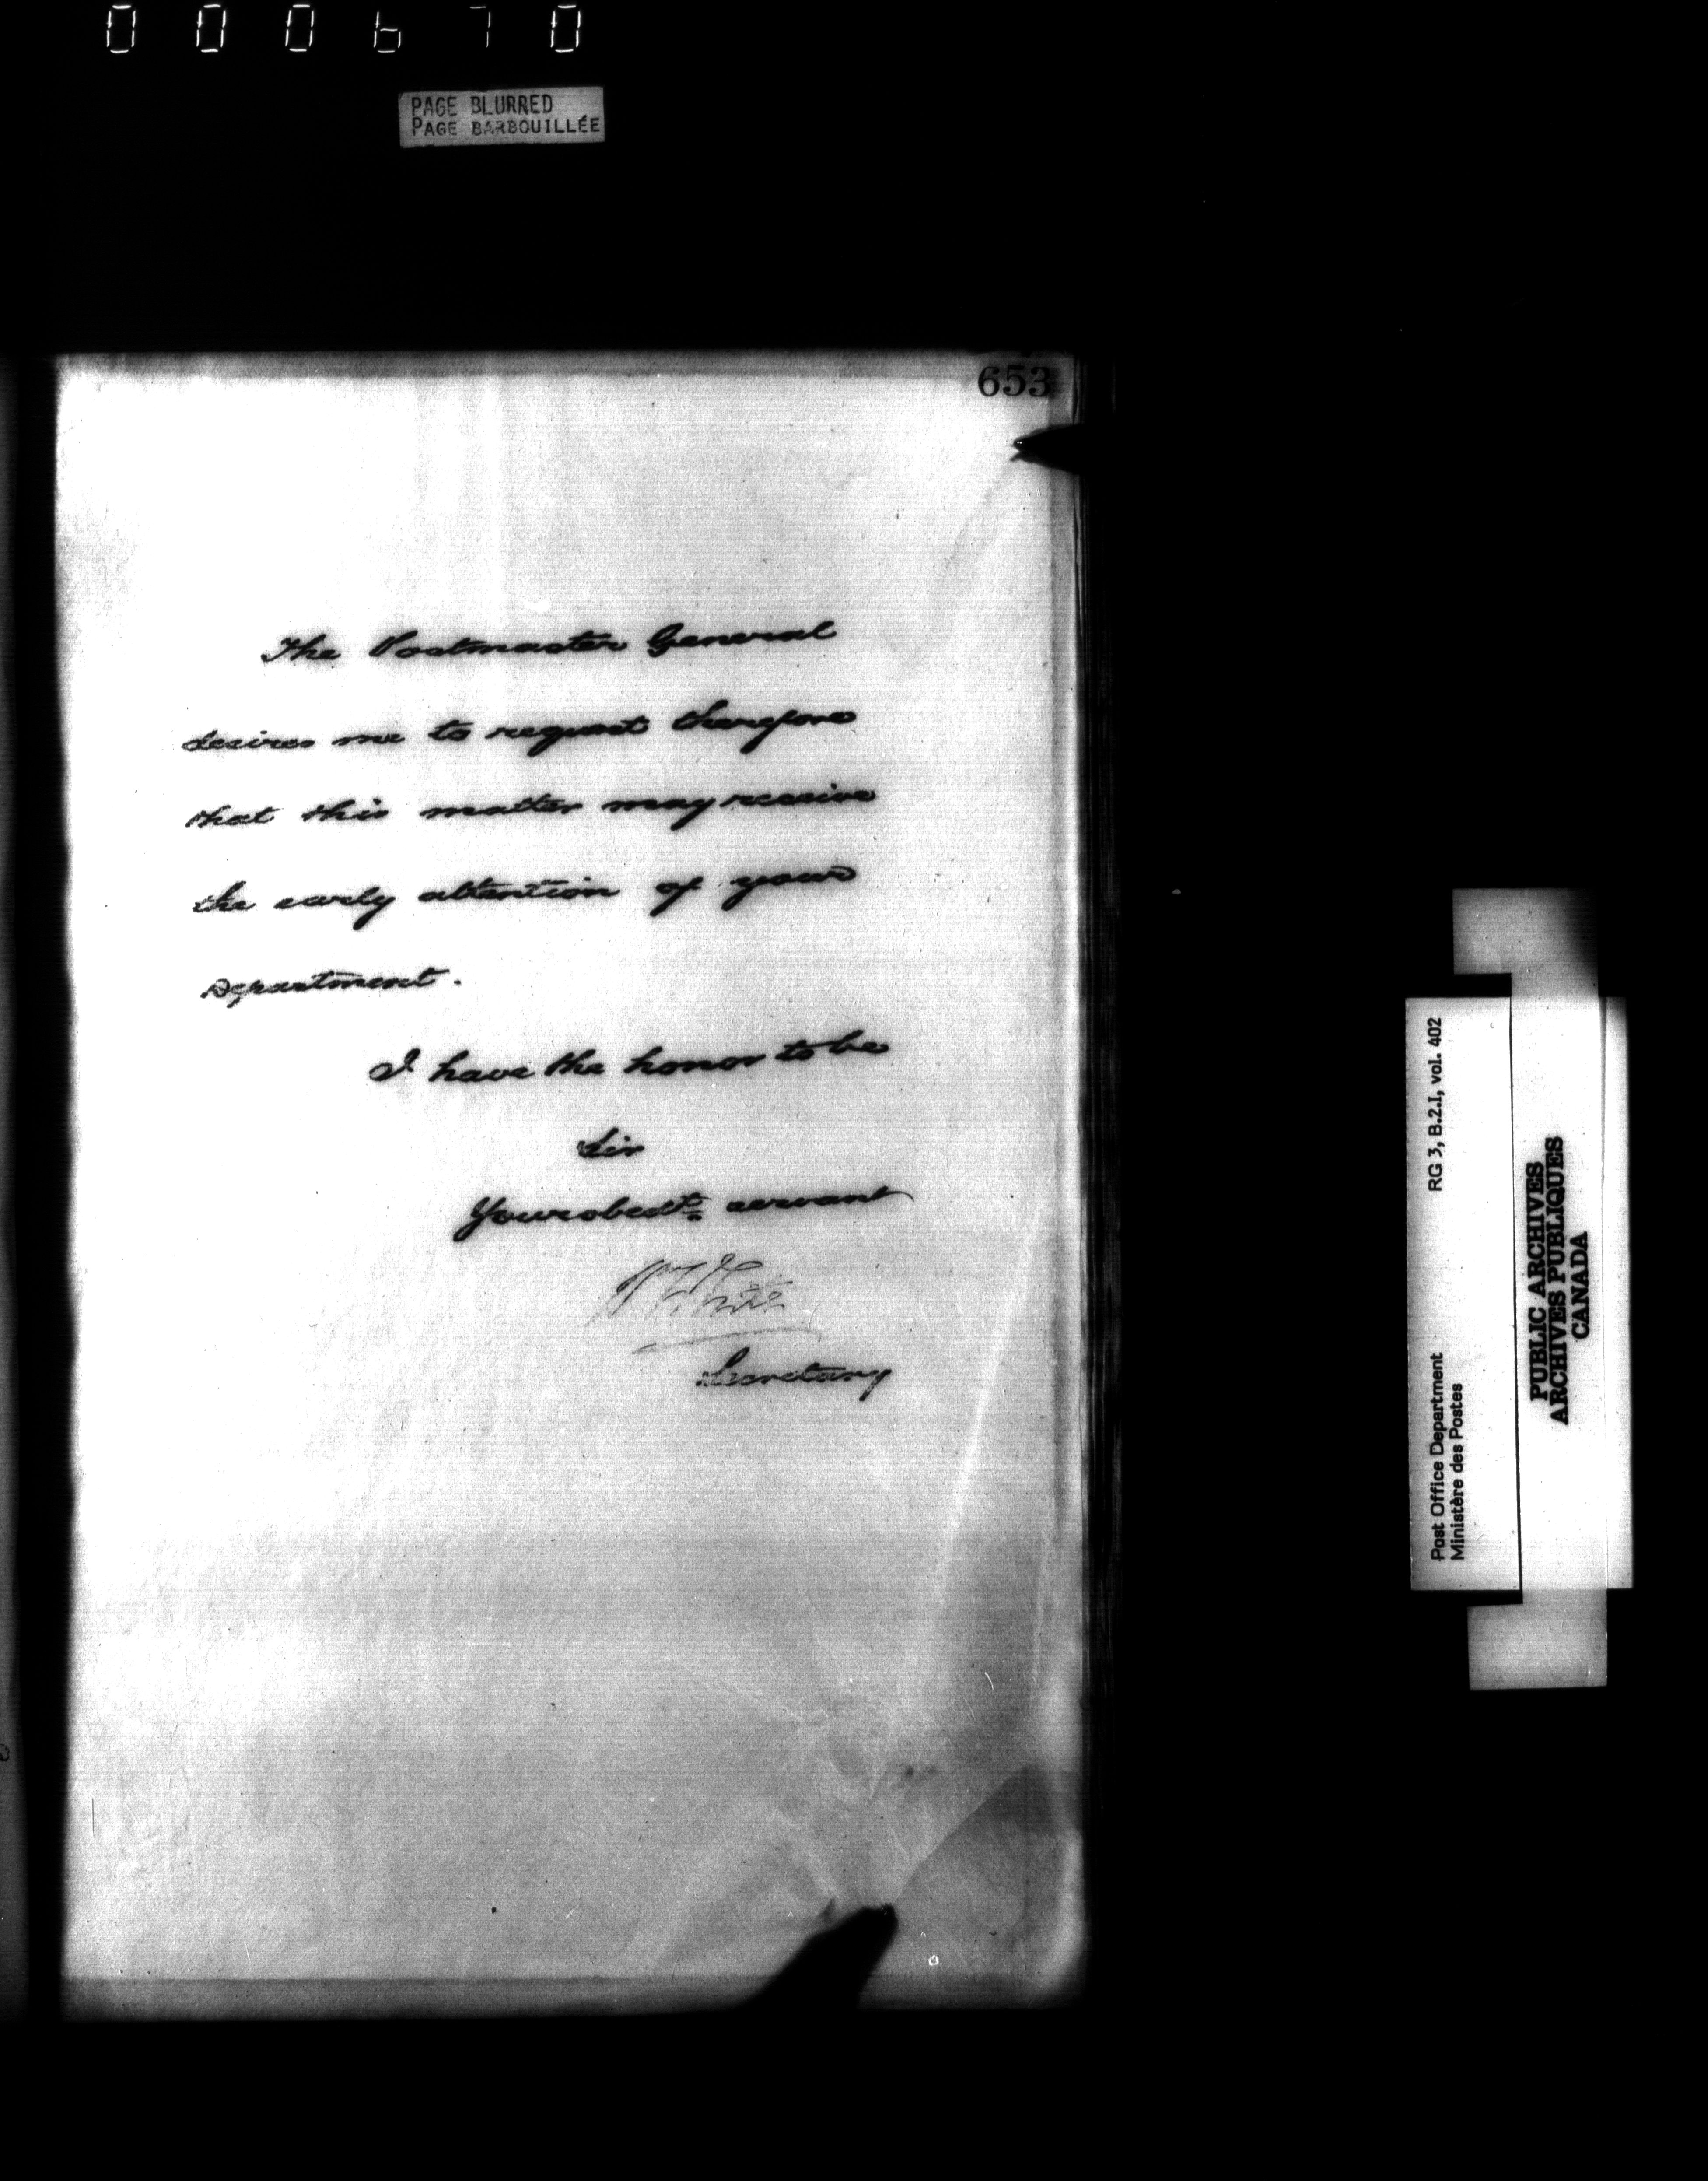 000670
PAGE BLURRED
PAGE BARBOUILLÉE
653
The Postmaster General
desires me to request therefore
that this matter may receive
the early attention of your
Department.
I have the honor to be
Sir
Your obedt. servant
Wm White
Secretary
Post Office Department RG 3, B.2.I, vol. 402
Ministère des Postes
PUBLIC ARCHIVES
ARCHIVES PUBLIQUES
CANADA